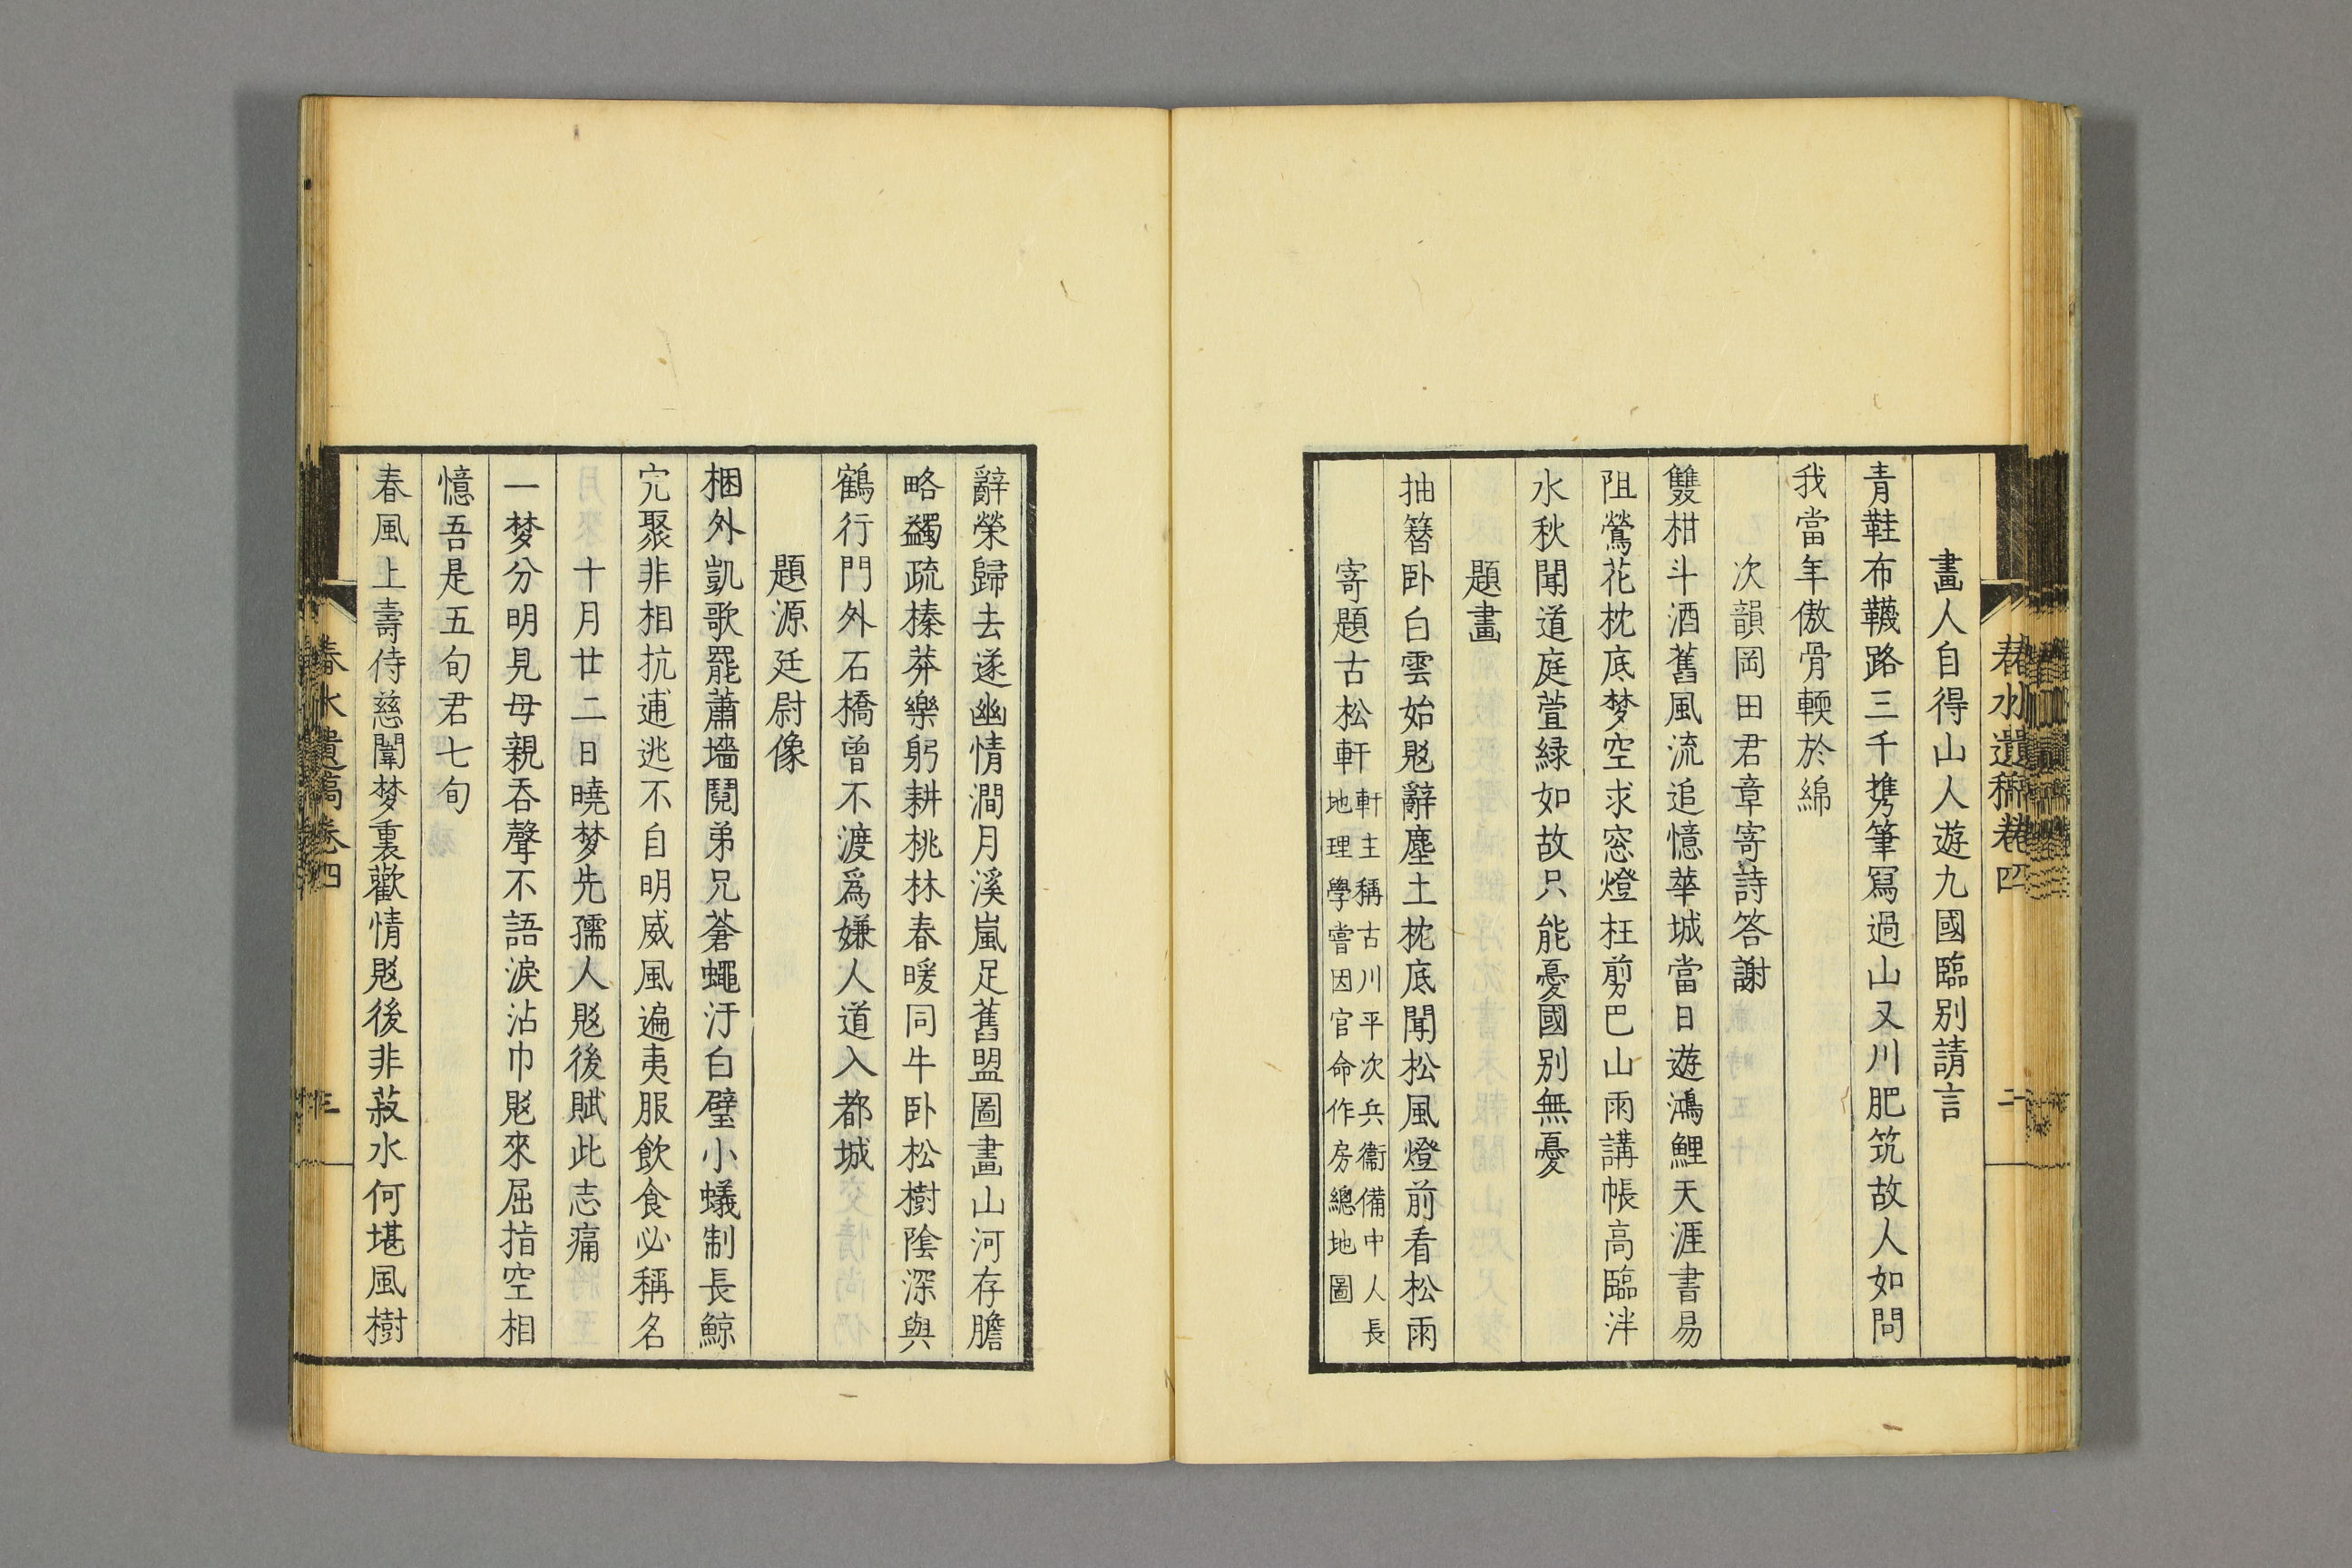 春水遺稿卷四
二
畫人自得山人遊九國臨別請言
青鞋布韈路三千携筆冩過山又川肥筑故人如問
我當年傲骨輭於綿
次韻岡田君章寄詩答謝
雙柑斗酒舊風流追憶華城當日遊鴻鯉天涯書易
阻鶯花枕底梦空求窓燈枉剪巴山雨講帳高臨泮
水秋聞道庭萱緑如故只能憂國別無憂
題畫
抽簪卧白雲始覐辭塵土枕底聞松風燈前看松雨
寄題古松軒
軒主稱古川平次兵衞備中人長
地理學嘗因官命作房總地圖
辭榮歸去遂幽情澗月溪嵐足舊盟圖畫山河存膽
略蠲疏榛莽樂躬耕桃林春暖同牛卧松樹陰深與
鶴行門外石橋曾不渡爲嫌人道入都城
題源廷尉像
梱外凱歌罷蕭墻鬩弟兄蒼蠅汙白璧小蟻制長鯨
完聚非相抗逋逃不自明威風遍夷服飲食必稱名
十月廿二日曉梦先孺人覐後賦此志痛
一梦分明見母親吞聲不語淚沾巾覐來屈指空相
憶吾是五旬君七旬
春風上壽侍慈闈梦裏歡情覐後非菽水何堪風樹
春水遺稿卷四
三